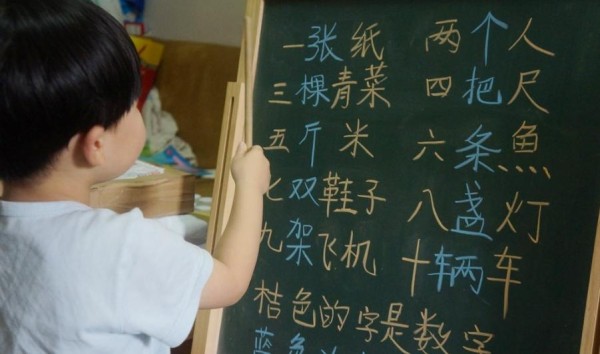 一张纸 两个人
三棵青菜 四把尺
五斤米 六条魚
七双鞋子 八盏灯
九架飞机 十辆车
桔色的字是数字
蓝色